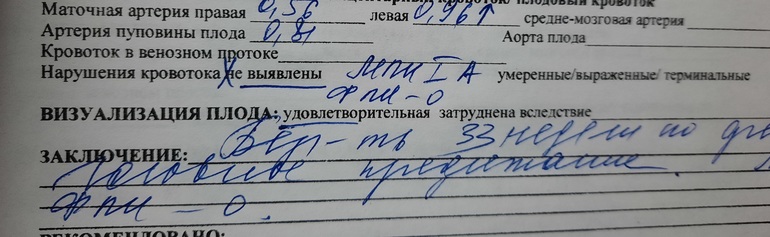 Маточная артерия правая 0,56 левая 0,96↑ средне-мозговая артерия
Артерия пуповины плода 0,81 Аорта плода
Кровоток в венозном протоке
Нарушения кровотока не выявлены МПК IA умеренные/выраженные/ терминальные
ФПК-0
ВИЗУАЛИЗАЦИЯ ПЛОДА: удовлетворительная затруднена вследствие
ЗАКЛЮЧЕНИЕ: Бер-ть 33 недели по
Головное предлежание.
ФПК - 0.
РЕКОМЕНДОВАНО: